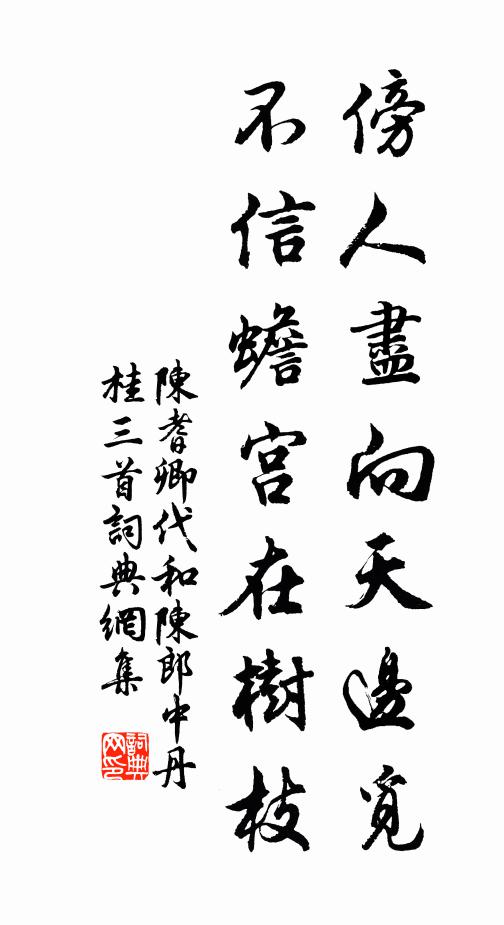 傍人盡向天邊覓
不信蟾宮在樹枝
陳耆卿代和陳郎中丹
桂三首詞典網集
詞典网印